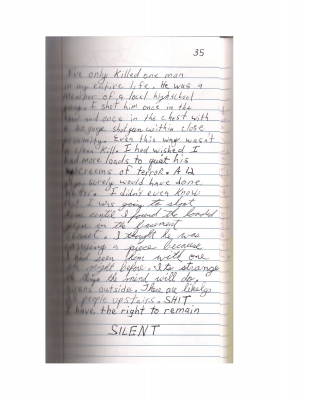 35
I've only killed one man
in my entire life. He was a
member of a local highschool
I shot him once in the
and once in the chest with
a gauge shotgun within close
Even this wage wasn't
a clean kill. I had wished I
had more loads to quiet his
screams of terror. A 12
surely would have done
I didn't even know
I was going to shoot
them until I found the loaded
on the
I thought he was
carrying a piece because
I had seen them with one
night before. Its strange
things the mind will do.
outside. There are likely
people upstairs. SHIT
I have the right to remain
SILENT